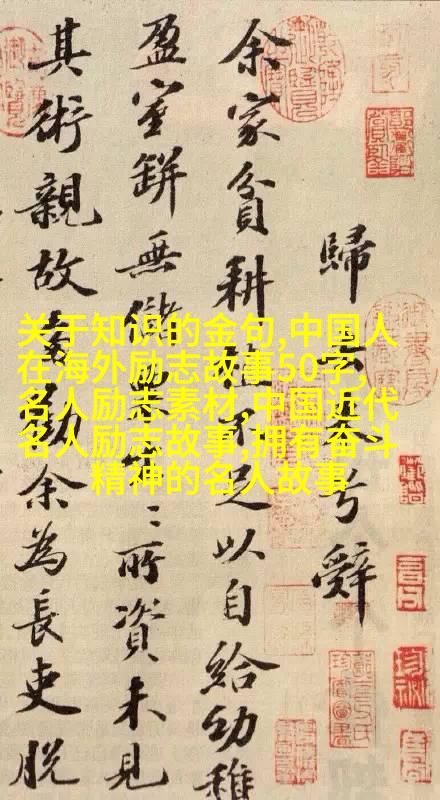 歸去來兮辭
余家貧耕植不足以自給幼稚
盈室缾無儲粟生〻所資未見
其術親故多勸余為長吏脫
关于知识的金句,中国人
在海外励志故事50字,
名人励志素材,中国近代
名人励志故事,拥有奋斗
精神的名人故事